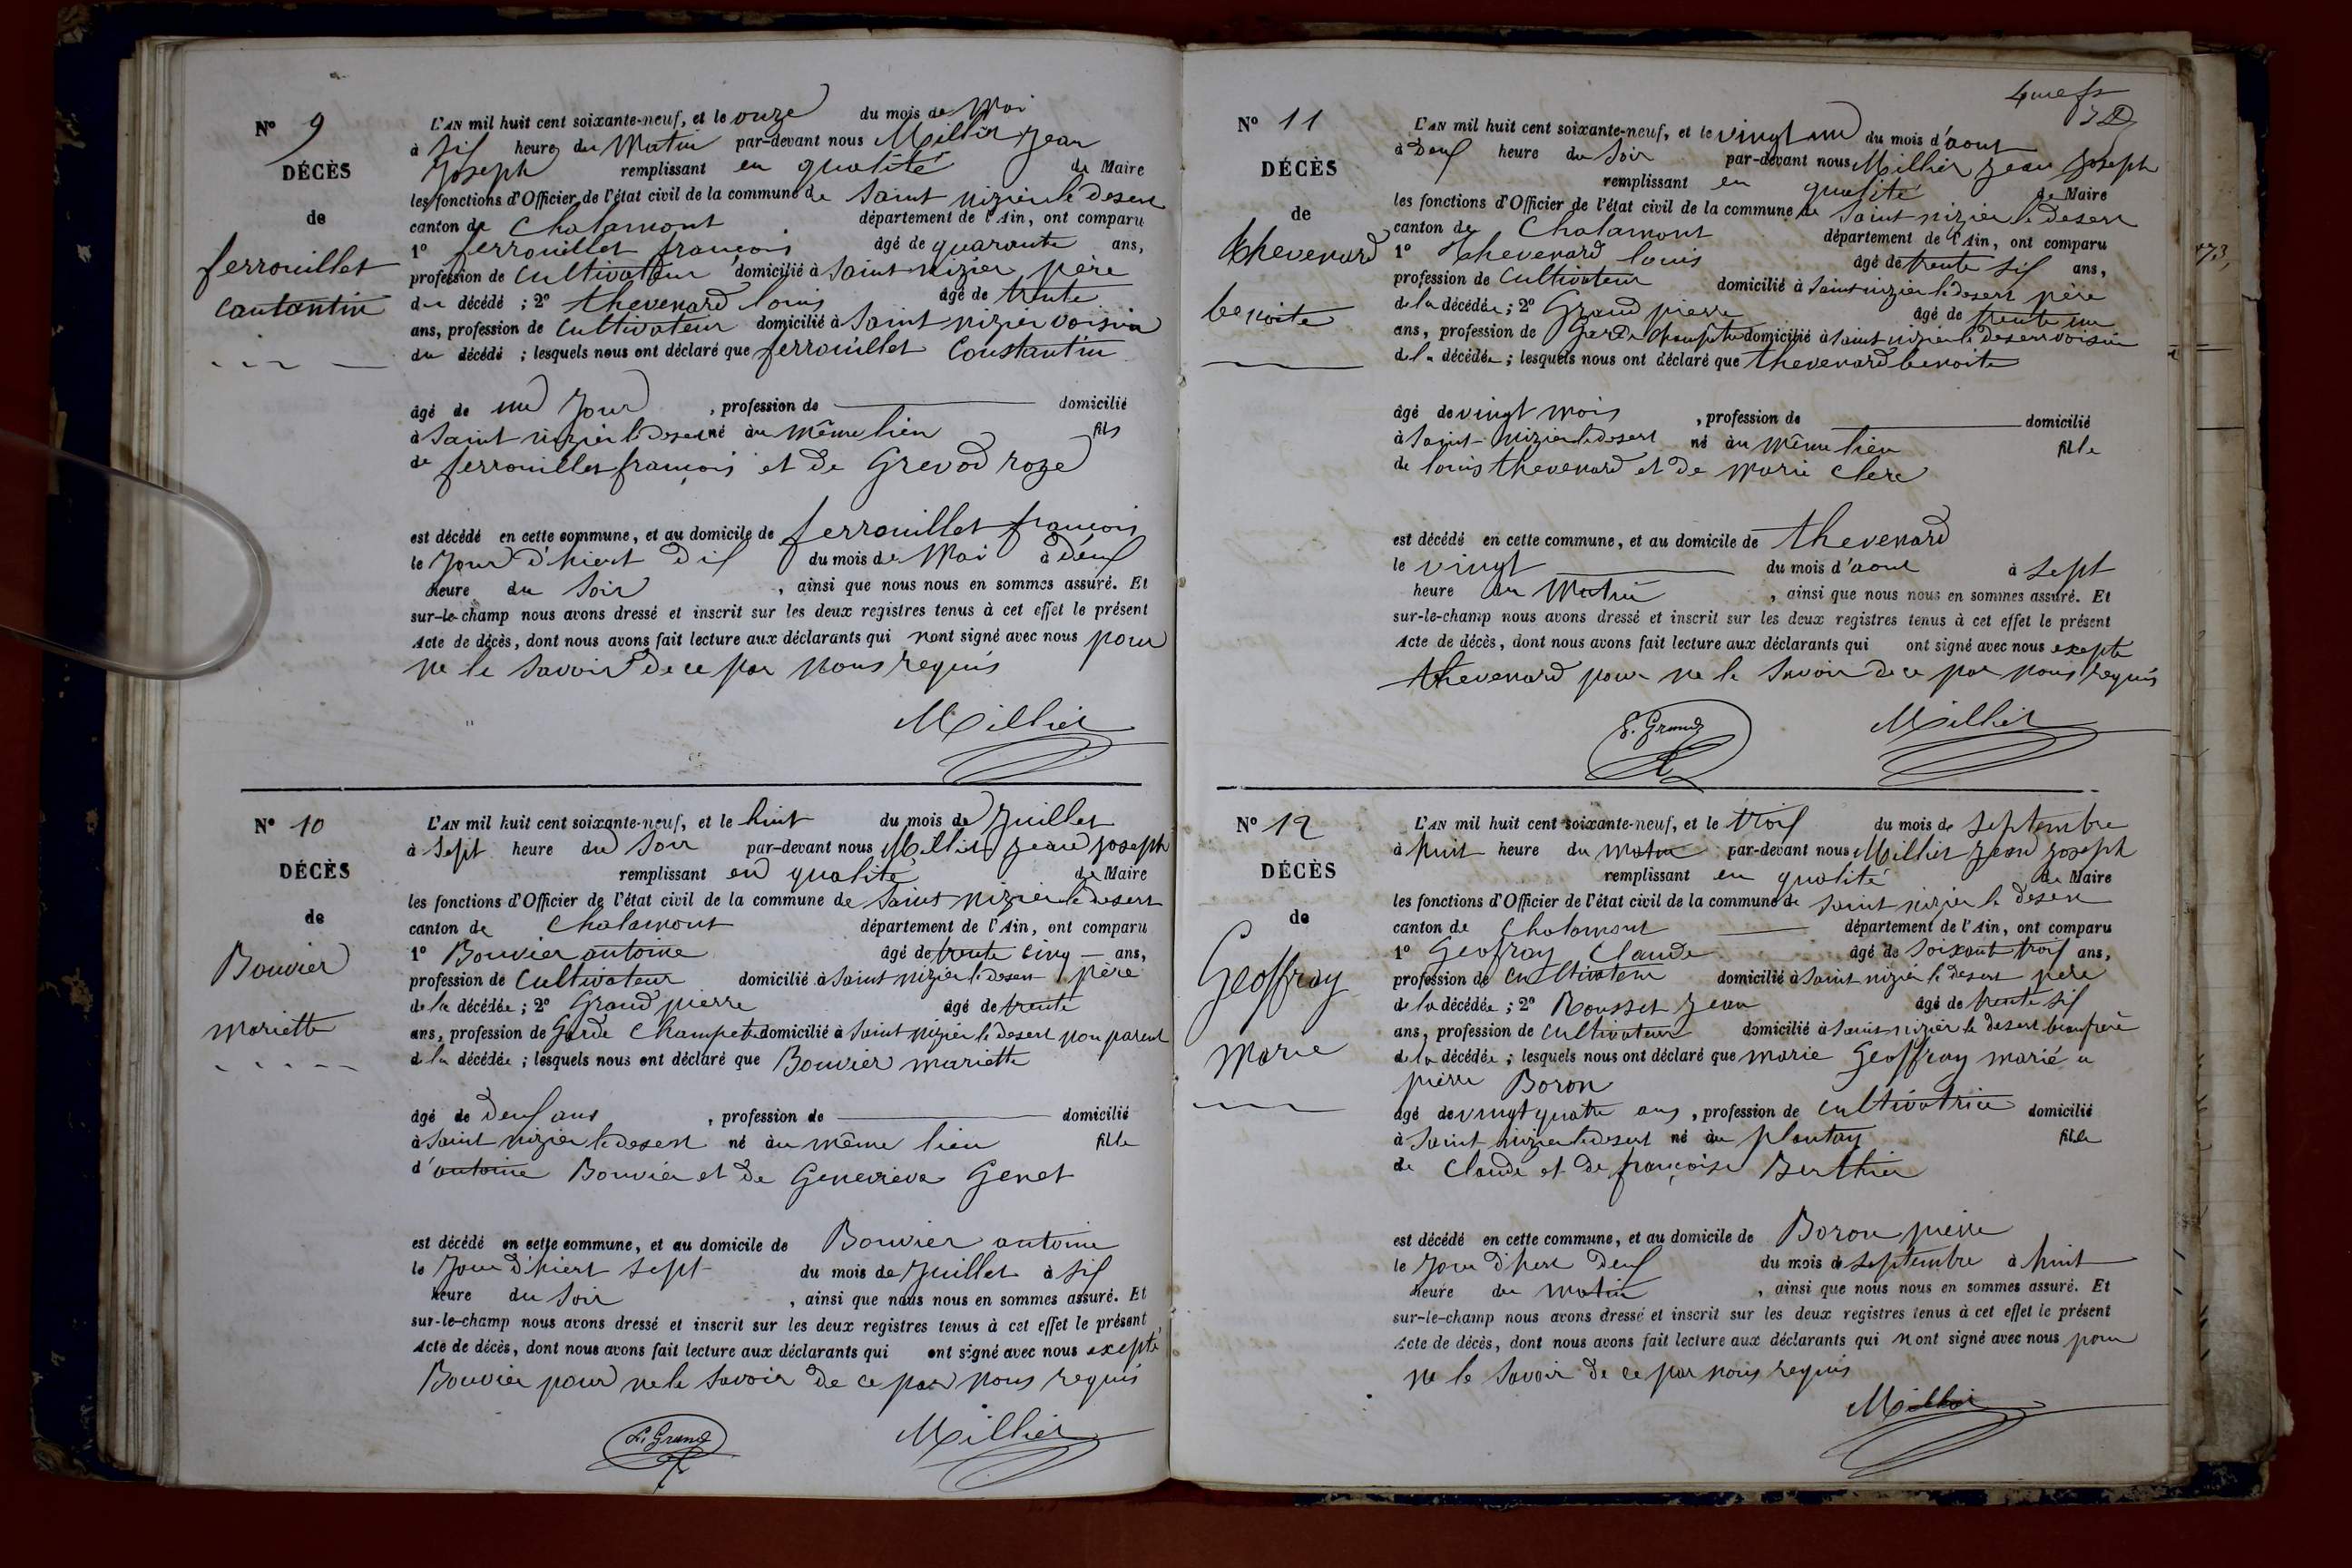 N° 9
DÉCÈS
de
ferrouillet
Contantin
L'AN mil huit cent soixante-neuf, et le onze du mois de Mai
à Six heures du Matin par-devant nous Millier Jean
Joseph remplissant en qualité de Maire
les fonctions d'Officier de l'état civil de la commune de Saint nizier le desert
canton de Chalamont département de l'Ain, ont comparu
1° ferrouillet françois âgé de quarante ans,
profession de Cultivateur domicilié à Saint nizier père
du décédé ; 2° thevenard louis âgé de trente
ans, profession de Cultivateur domicilié à Saint nizier voisin
du décédé ; lesquels nous ont déclaré que ferrouillet Constantin
âgé de un Jour , profession de domicilié
à Saint nizier le desert né au même lieu fils
de ferrouillet françois et de Grevod roze
est décédé en cette commune, et au domicile de ferrouillet françois
le Jour d'hiert dix du mois de Mai à deux
heure du Soir , ainsi que nous nous en sommes assuré. Et
sur-le-champ nous avons dressé et inscrit sur les deux registres tenus à cet effet le présent
Acte de décès, dont nous avons fait lecture aux déclarants qui nont signé avec nous pour
ne le Savoir de ce par nous requis
Millier
N° 10
DÉCÈS
de
Bouvier
mariette
L'AN mil huit cent soixante-neuf, et le huit du mois de Juillet
à Sept heure du Soir par-devant nous Millier Jean Joseph
remplissant en qualité de Maire
les fonctions d'Officier de l'état civil de la commune de Saint nizier le desert
canton de Chalamont département de l'Ain, ont comparu
1° Bouvier antoine âgé de trente cinq ans,
profession de Cultivateur domicilié à Saint nizier le desert père
de la décédée ; 2° Grand pierre âgé de trente
ans, profession de Garde Champetre domicilié à Saint nizier le desert non parent
de la décédée ; lesquels nous ont déclaré que Bouvier mariette
âgé de deux ans , profession de domicilié
à Saint nizier le desert né au même lieu fille
d'antoine Bouvier et de Genevieve Genet
est décédé en cette commune, et au domicile de Bouvier antoine
le Jour d'hiert Sept du mois de Juillet à Six
heure du Soir , ainsi que nous nous en sommes assuré. Et
sur-le-champ nous avons dressé et inscrit sur les deux registres tenus à cet effet le présent
Acte de décès, dont nous avons fait lecture aux déclarants qui ont signé avec nous exepté
Bouvier pour ne le Savoir de ce par nous requis
Grand Millier
N° 11
DÉCÈS
de
thevenard
benoite
L'AN mil huit cent soixante-neuf, et le vingt un du mois d'aout
à Deux heure du Soir par-devant nous Millier Jean Joseph
remplissant en qualité de Maire
les fonctions d'Officier de l'état civil de la commune de Saint nizier le desert
canton de Chalamont département de l'Ain, ont comparu
1° thevenard louis âgé de trente Six ans,
profession de Cultivateur domicilié à Saint nizier le desert père
de la décédée ; 2° Grand pierre âgé de trente un
ans, profession de Garde Champetre domicilié à Saint nizier le desert voisin
de la décédée ; lesquels nous ont déclaré que thevenard benoite
âgé de vingt mois , profession de domicilié
à Saint nizier le desert né au même lieu fille
de louis thevenard et de Marie Clerc
est décédé en cette commune, et au domicile de thevenard
le vingt du mois d'aout à Sept
heure du Matin , ainsi que nous nous en sommes assuré. Et
sur-le-champ nous avons dressé et inscrit sur les deux registres tenus à cet effet le présent
Acte de décès, dont nous avons fait lecture aux déclarants qui ont signé avec nous exepte
thevenard pour ne le Savoir de ce par nous requis
Grand Millier
N° 12
DÉCÈS
de
Geoffray
Marie
L'AN mil huit cent soixante-neuf, et le trois du mois de Septembre
à huit heure du matin par-devant nous Millier Jean Joseph
remplissant en qualité de Maire
les fonctions d'Officier de l'état civil de la commune de Saint nizier le desert
canton de Chalamont département de l'Ain, ont comparu
1° Geofray Claude âgé de Soixant trois ans,
profession de Cultivateur domicilié à Saint nizier le desert père
de la décédée ; 2° Rousset Jean âgé de trente Six
ans, profession de Cultivateur domicilié à Saint nizier le desert beaufrère
de la décédée ; lesquels nous ont déclaré que marie Geoffray marié a
pierre Boron
âgé de vingt quatre ans , profession de Cultivatrice domicilié
à Saint nizier le desert né au plantay fille
de Claude et de françoise Berthier
est décédé en cette commune, et au domicile de Boron pierre
le Jour d'hert deux du mois de Septembre à huit
heure du matin , ainsi que nous nous en sommes assuré. Et
sur-le-champ nous avons dressé et inscrit sur les deux registres tenus à cet effet le présent
Acte de décès, dont nous avons fait lecture aux déclarants qui nont signé avec nous pour
ne le Savoir de ce par nous requis
Millier